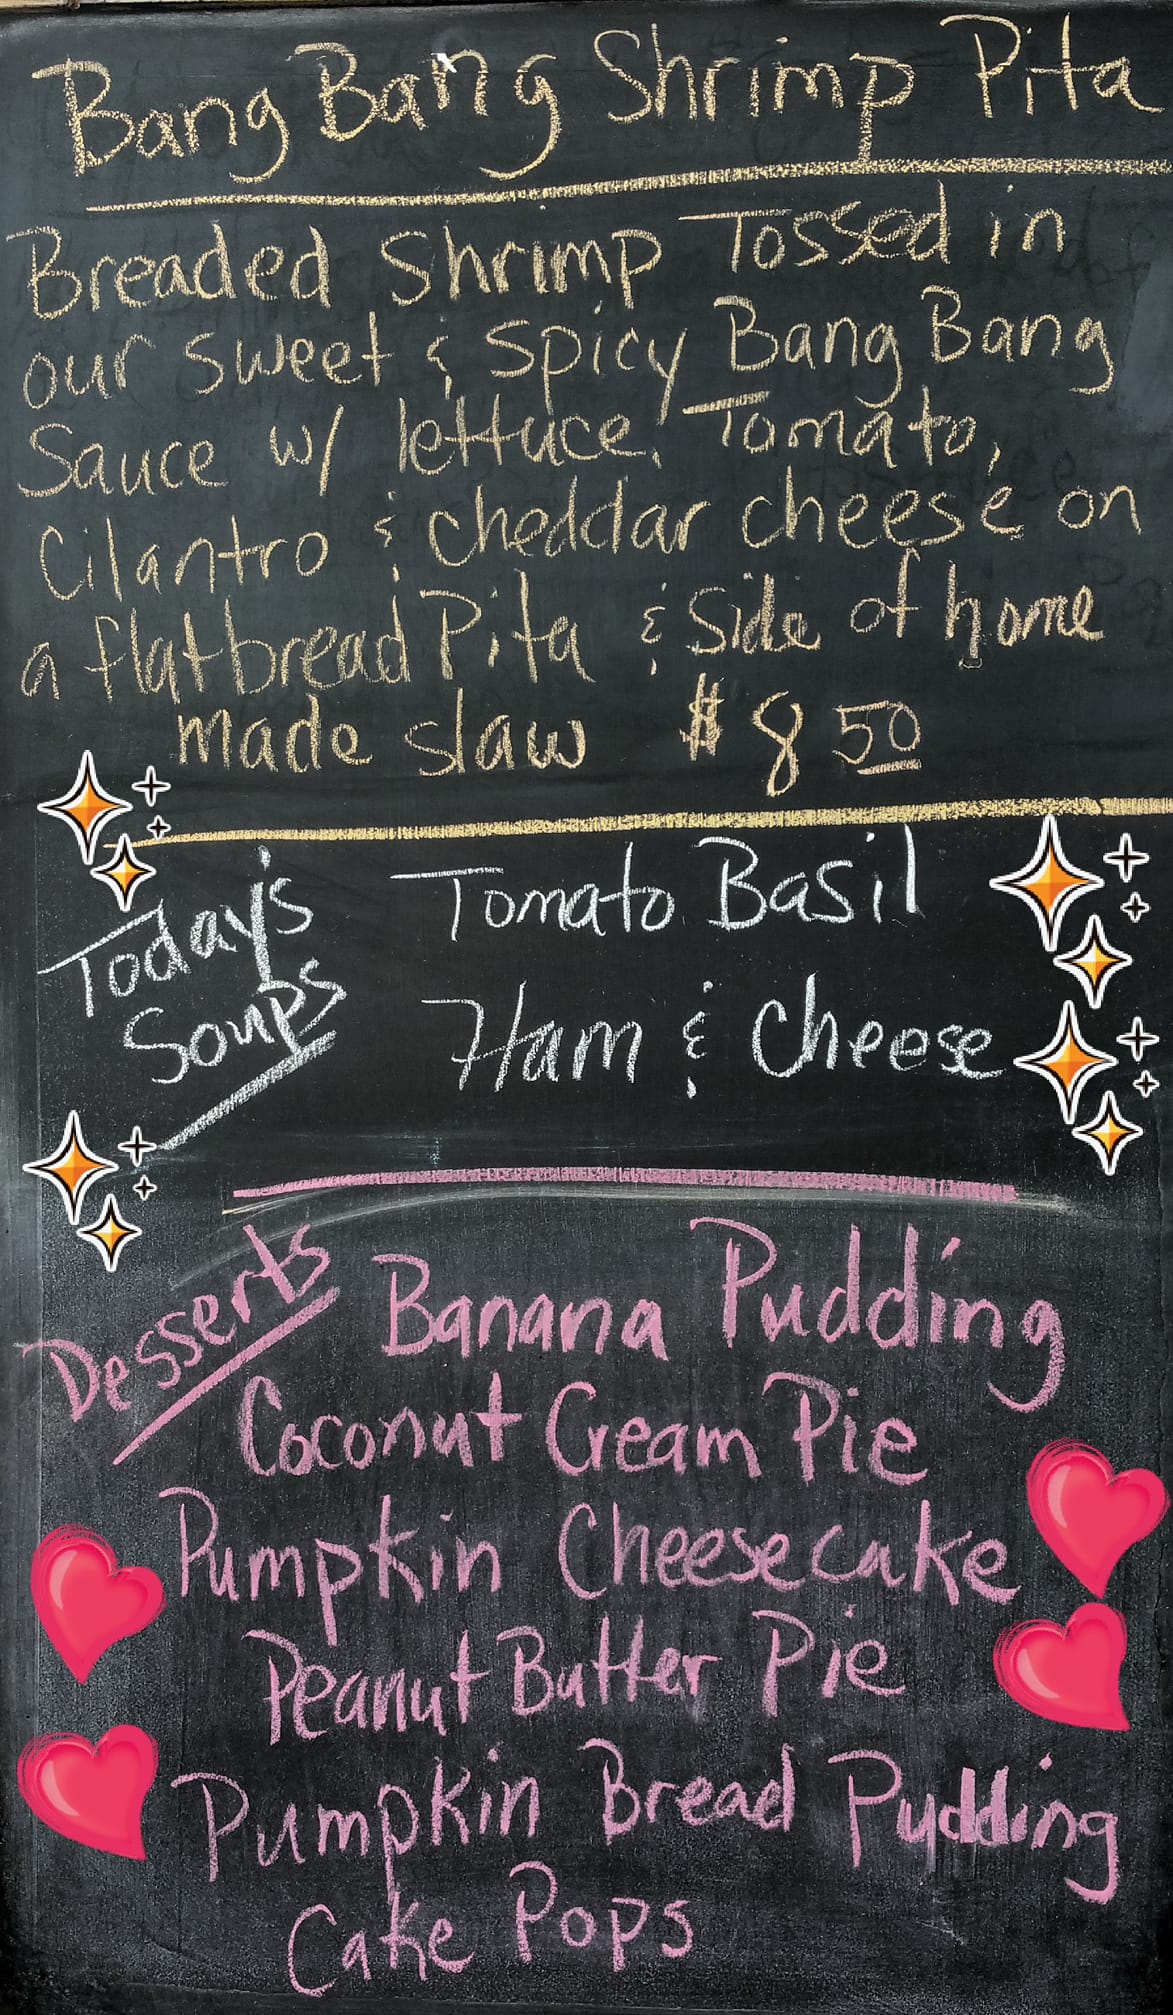 Bang Bang Shrimp Pita
Breaded Shrimp Tossed in
our sweet & spicy Bang Bang
Sauce w/ lettuce, Tomato,
Cilantro & cheddar cheese on
a flatbread Pita & Side of home
made slaw $8 50
Today's
Soups
Tomato Basil
Ham & Cheese
Desserts
Banana Pudding
Coconut Cream Pie
Pumpkin Cheesecake
Peanut Butter Pie
Pumpkin Bread Pudding
Cake Pops